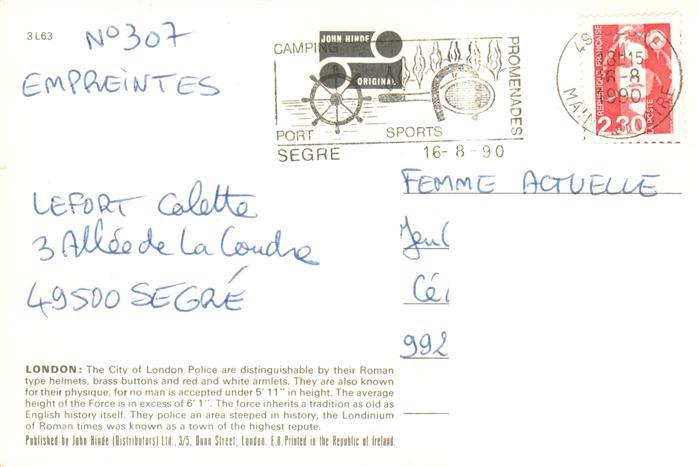 3L63
N° 307
EMPREINTES
CAMPING
JOHN HINDE
ORIGINAL
PROMENADES
PORT SPORTS
SEGRE 16-8-90
18H15
16-8
1990
REPUBLIQUE FRANÇAISE
2,30
LA POSTE
LEFORT Colette
3 Allée de La Coudre
49500 SEGRÉ
FEMME ACTUELLE
Jeu
Cé
992
LONDON: The City of London Police are distinguishable by their Roman
type helmets, brass buttons and red and white armlets. They are also known
for their physique, for no man is accepted under 5' 11" in height. The average
height of the Force is in excess of 6' 1". The force inherits a tradition as old as
English history itself. They police an area steeped in history, the Londinium
of Roman times was known as a town of the highest repute.
Published by John Hinde (Distributors) Ltd., 3/5, Dunn Street, London. E.8. Printed in the Republic of Ireland.